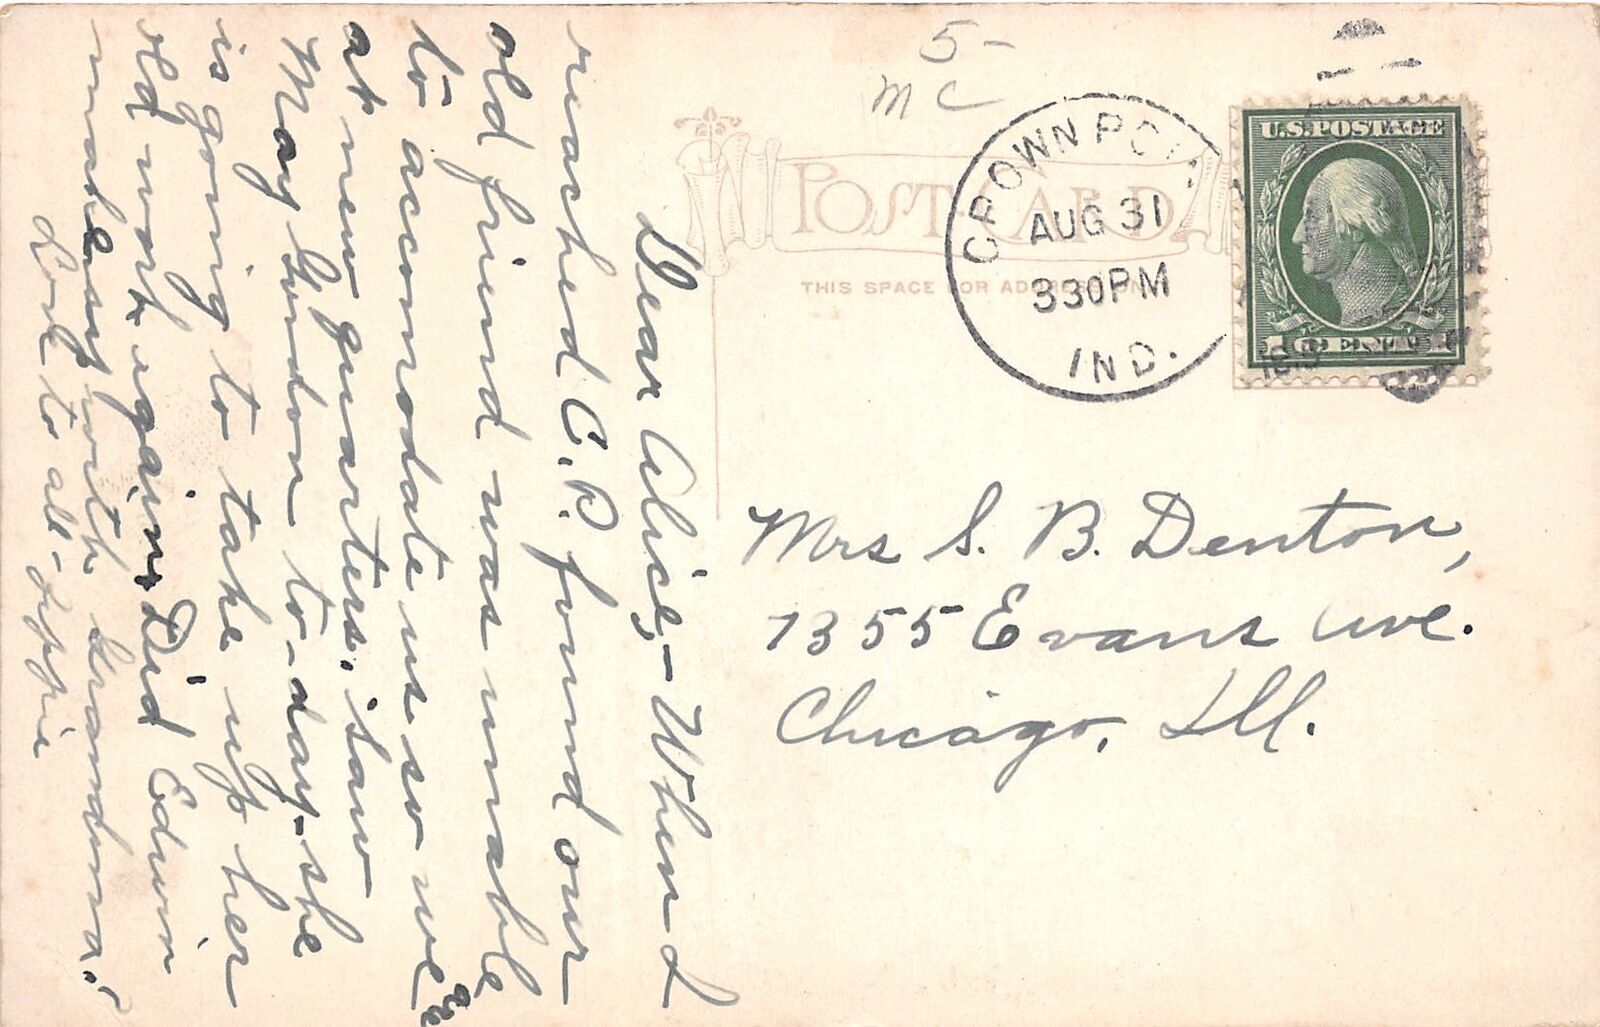 Dear Alice,- When I
reached C.P. found our
old friend was unable
to accomodate us so we're
at new quarters. Saw
May Gordon to-day - she
is going to take up her
old work again. Did Edwin
make any with Grandma?
Love to all -
5-
m c
POST CARD
THIS SPACE FOR ADDRESS ONLY
CROWN POINT
AUG 31
330PM
IND.
U.S. POSTAGE
1 CENT 1
Mrs S. B. Denton,
7355 Evans Ave.
Chicago, Ill.